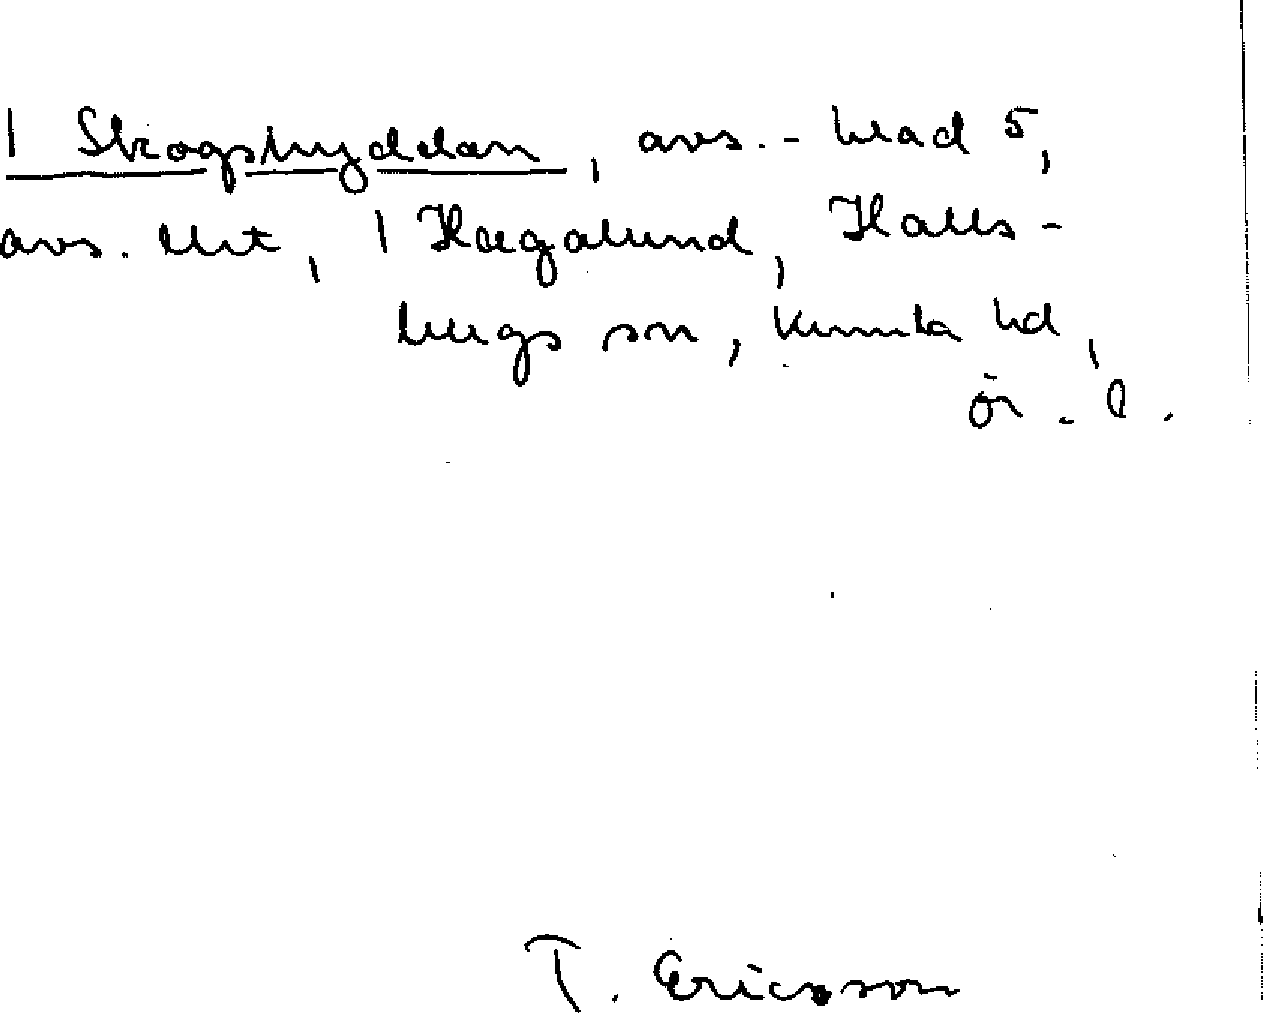 1 Skogshyddan, avs. - blad 5,
avs. 1 Hagalund, Halls-
bergs sn, Kumla hd,
ör. l.
T. Ericsson